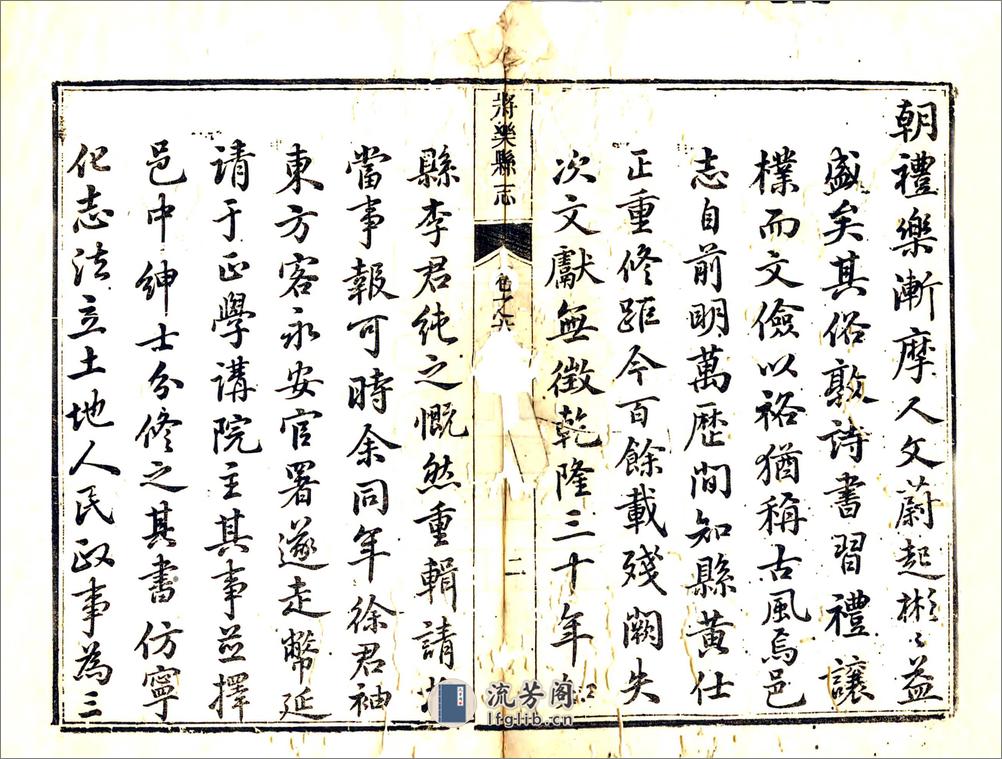 朝禮樂漸摩人文蔚起彬〻益
盛矣其俗敦詩書習禮讓
樸而文儉以裕猶稱古風焉邑
志自前明萬歷間知縣黃仕
正重修距今百餘載殘闕失
次文獻無徵乾隆三十年
將樂縣志
卷之六
二
縣李君純之慨然重輯請
當事報可時余同年徐君袖
東方客永安官署遂走幣延
請于正學講院主其事並擇
邑中紳士分修之其書仿寧
化志法立土地人民政事為三
流芳阁
lfglib.cn